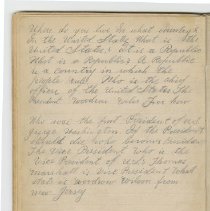 Where do you live in what country
In the United States What is the
United States? it is a Republic
What is a Republic? A Republic
is a country in which the
people rule. Who is the chief
officer of the United States The
President Woodrow
Who was the first President of U.S.
George Washington. If the President
should die who becomes President
The Vice President Who is the
Vice President of U.S. Thomas
Marshall is Vice President What
state is Woodrow Wilson from
New Jersey